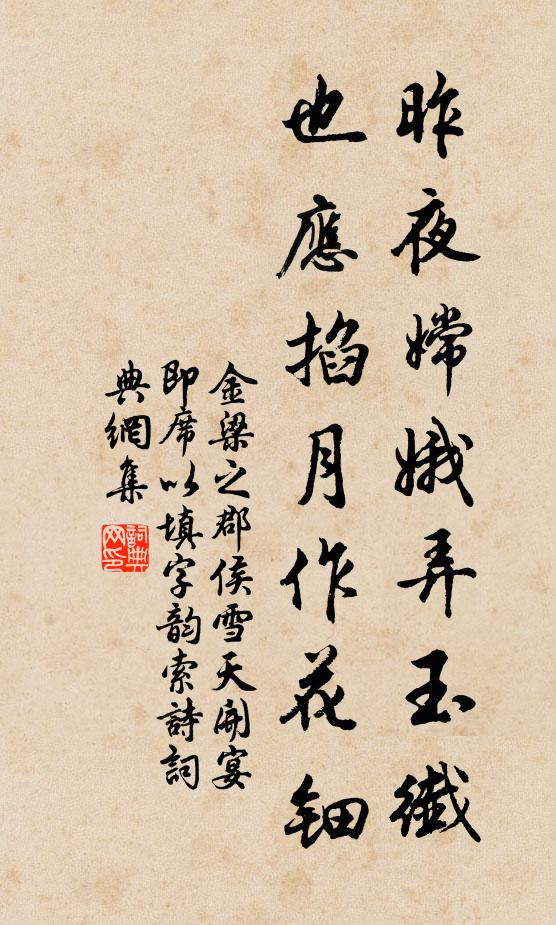 昨夜嫦娥弄玉纖
也應掐月作花鈿
金梁之郡侯雪天開宴
即席以填字韵索詩詞
典網集
詞典網印